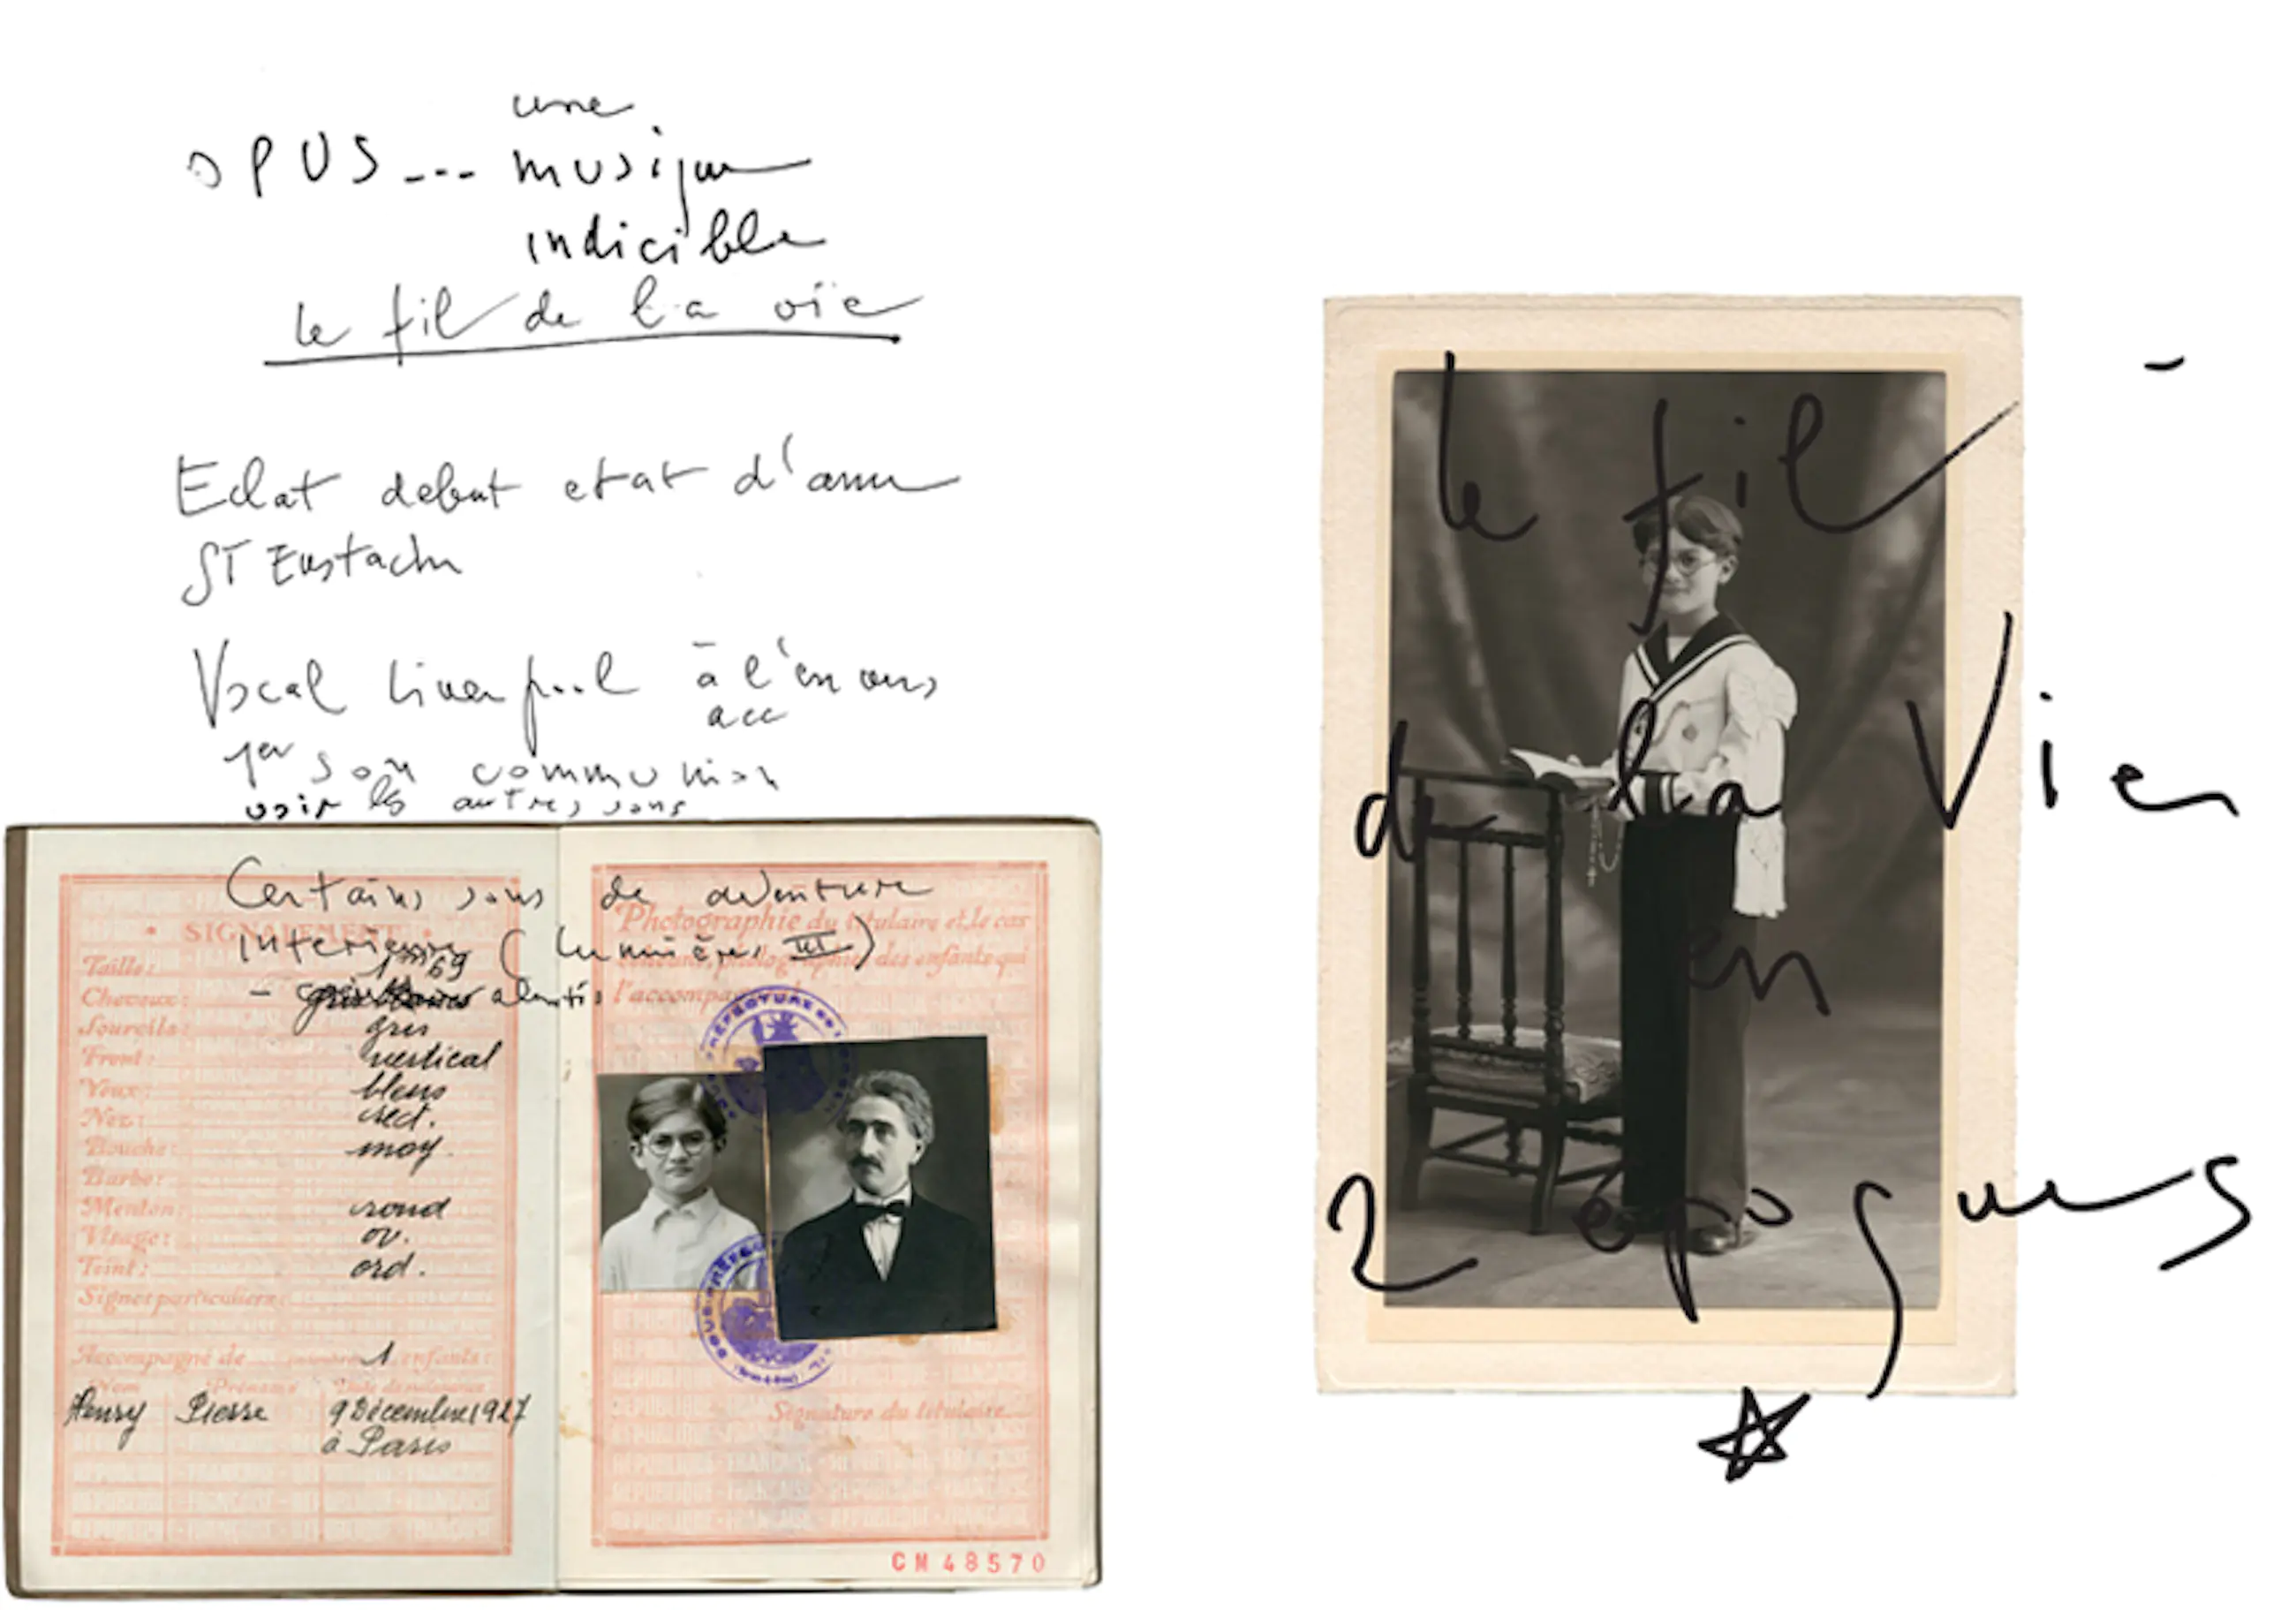 une
OPUS --- musique
indicible
le fil de la vie
Eclat debut etat d'ame
ST Eustache
Vocal Liverpool à l'envers
acc
1er son communion
voir les autres sons
Certains sons de aventure
interieure (Lumières III)
- ralentis
• SIGNALEMENT •
Taille: 1m69
Cheveux:
Sourcils: gris
Front: vertical
Yeux: bleus
Nez: rect.
Bouche: moy.
Barbe:
Menton: rond
Visage: ov.
Teint: ord.
Signes particuliers:
Accompagné de 1 enfants:
Nom Prénoms Date de naissance
Henry Pierre 9 Décembre 1927
à Paris
Photographie du titulaire et, le cas
échéant, photographies des enfants qui
l'accompagnent
PRÉFECTURE DE
Signature du titulaire
RÉPUBLIQUE FRANÇAISE
CM 48570
le fil
de la Vie
en
2 epoques